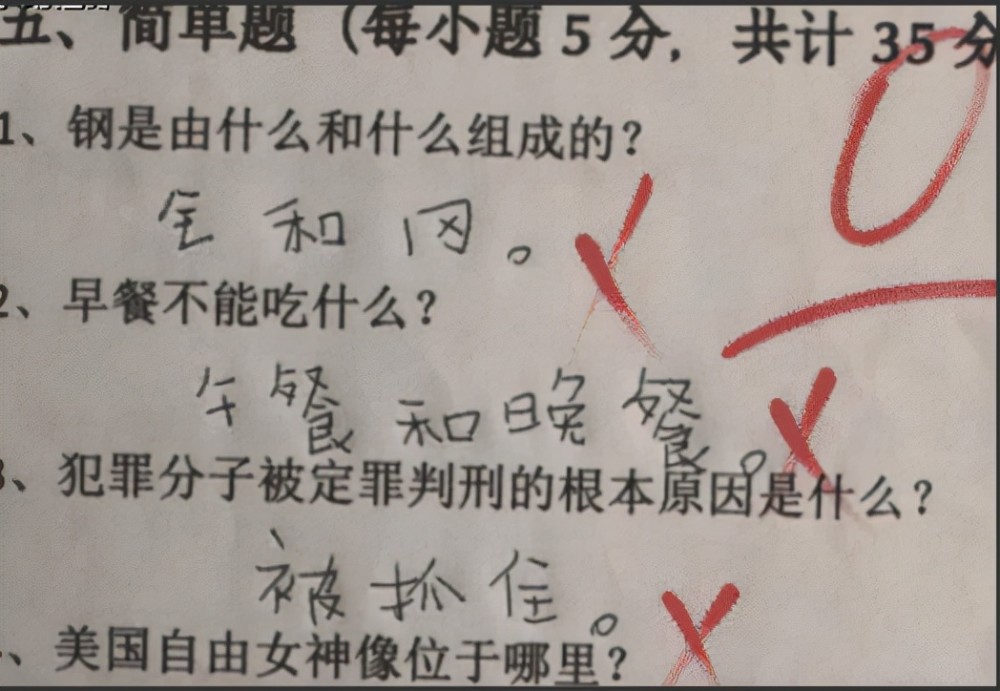 五、简单题（每小题5分，共计35分
0
1、钢是由什么和什么组成的？
钅和冈。
2、早餐不能吃什么？
午餐和晚餐。
3、犯罪分子被定罪判刑的根本原因是什么？
被抓住。
、美国自由女神像位于哪里？